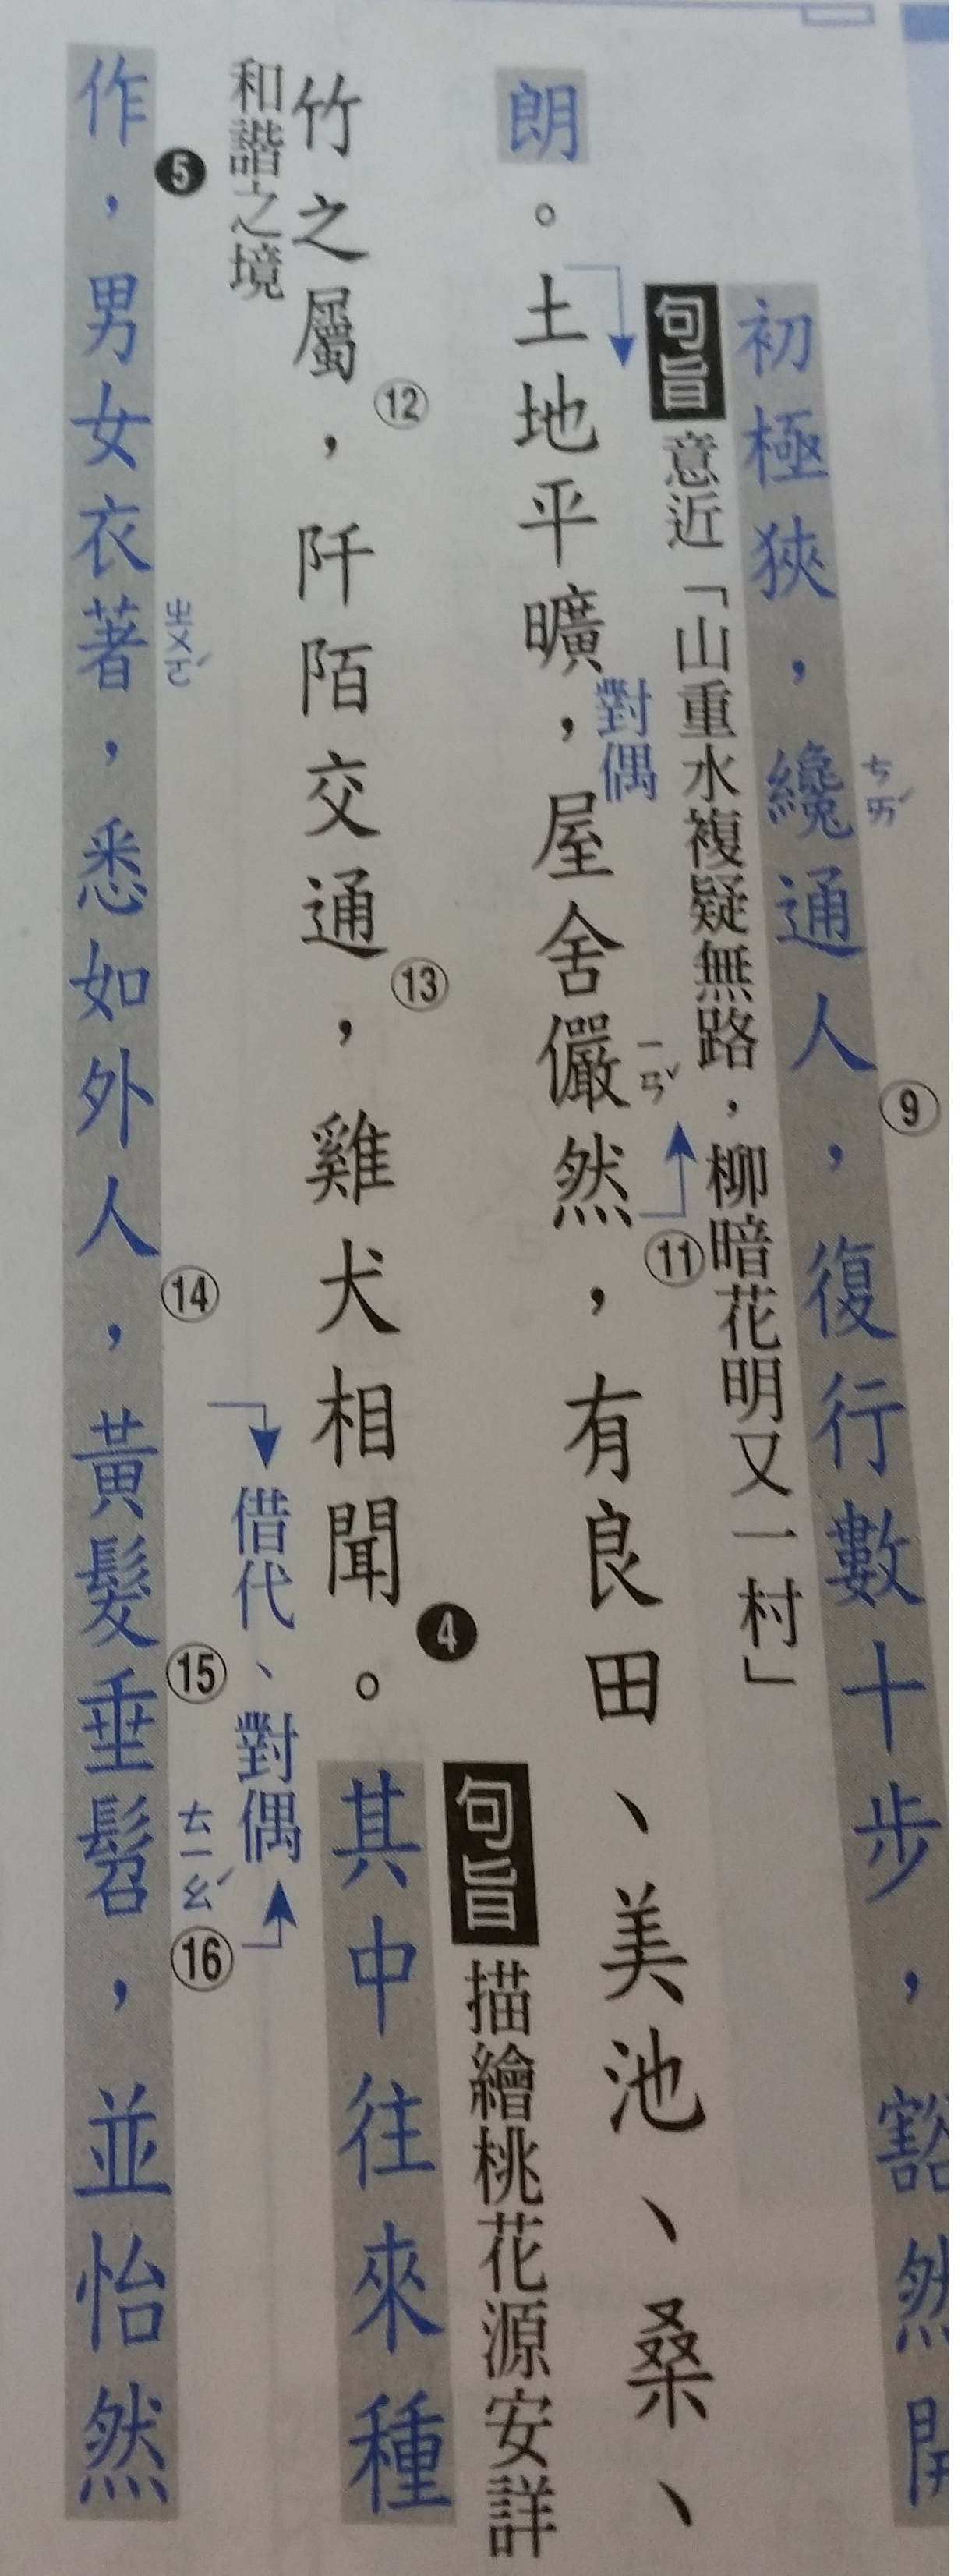 初極狹，纔通人⑨，復行數十步，豁然開
ㄘㄞˊ
句旨 意近「山重水複疑無路，柳暗花明又一村」
朗。土地平曠，屋舍儼然⑪，有良田、美池、桑、
對偶
ㄧㄢˇ
句旨 描繪桃花源安詳
竹之屬⑫，阡陌交通⑬，雞犬相聞❹。其中往來種
和諧之境
借代、對偶
作❺，男女衣著，悉如外人⑭，黃髮⑮垂髫⑯，並怡然
ㄓㄨㄛˊ
ㄊㄧㄠˊ